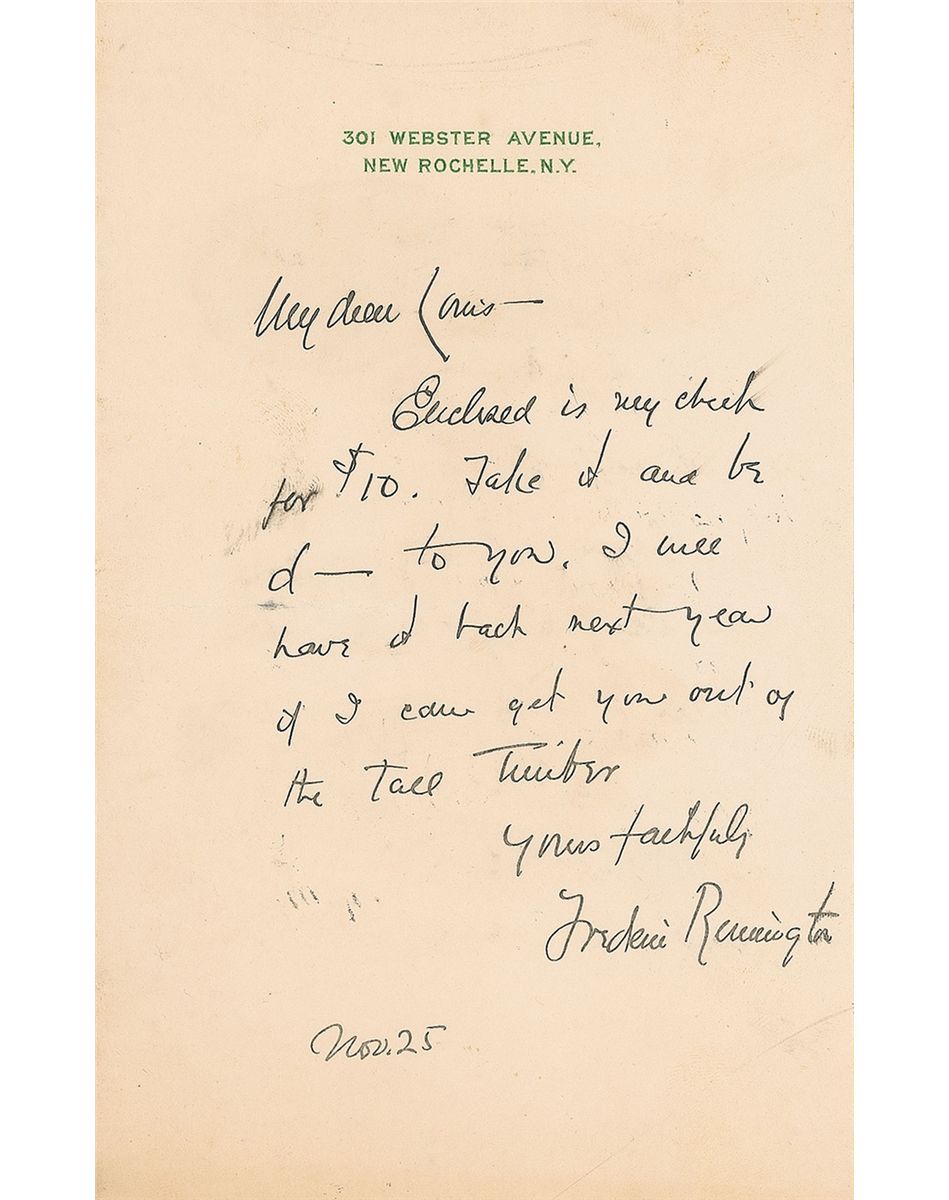 301 WEBSTER AVENUE,
NEW ROCHELLE, N.Y.
My dear Louis—
Enclosed is my check
for $10. Take it and be
d— to you. I will
have it back next year
if I can get you out of
the Tall Timber
Yours faithfully
Frederic Remington
Nov. 25